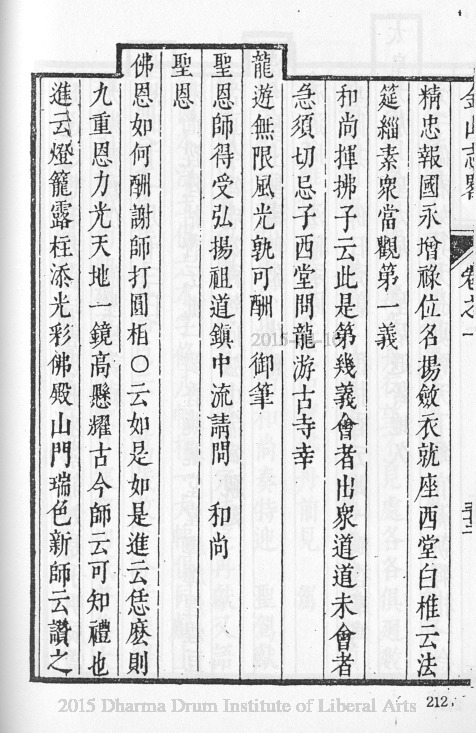 金山志畧 卷之一
精忠報國永增祿位名揚斂衣就座西堂白椎云法
筵緇素衆當觀第一義
和尚揮拂子云此是第幾義會者出衆道道未會者
急須切忌子西堂問龍游古寺幸
龍遊無限風光孰可酬 御筆
聖恩師得受弘揚祖道鎮中流請問 和尚
聖恩
佛恩如何酬謝師打圓相○云如是如是進云恁麽則
九重恩力光天地一鏡高懸耀古今師云可知禮也
進云燈籠露柱添光彩佛殿山門瑞色新師云讚之
212
2015 Dharma Drum Institute of Liberal Arts